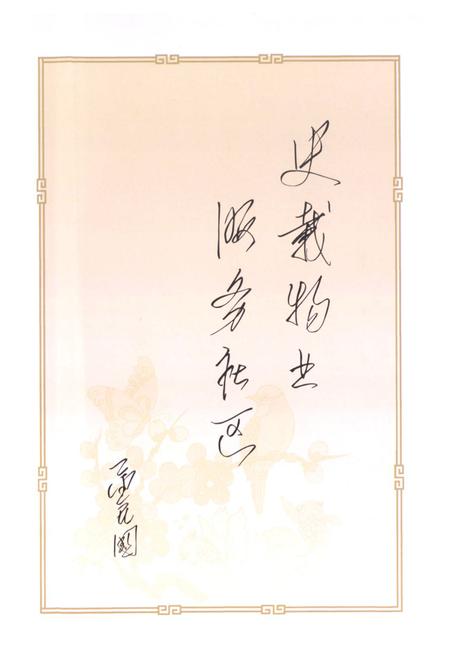 史载物业
服务社区